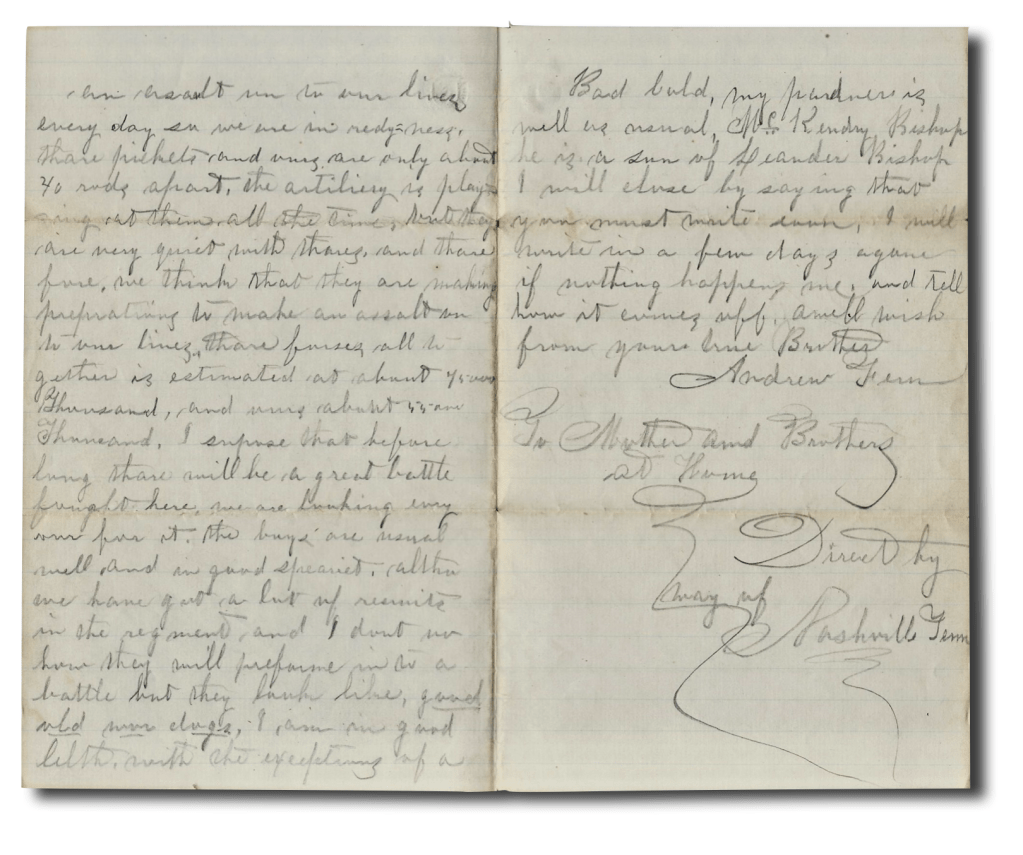 an asalt un to our lines
every day so we are in redy=ness.
thare pickets and ours are only about
40 rods apart, the artiliery is play-
ing at them all the time, but they
are very quiet with thares, and thare
fore, we think that they are making
preprations to make an assalt on
to our lines, thare forses all to-
gether is estimated at about 45000
Thousand, and ours about 55000
Thousand. I supose that before
long thare will be a great battle
fought here, we are looking evry
our for it. the boys are usual
well and in good speariet, altho
we have got a lot of recruits
in the regment and I dont no
how they will preforme in to a
battle but they look like, good
old war dogs, I am in good
helth, with the exceptions of a
Bad cold, my pardner is
well as usual, Mc Kendry Bishop
he is a son of Leander Bishop
I will close by saying that
you must write soon, I will
write in a few days agane
if nothing happens me, and tell
how it comes off. a well wish
from your true Brother
Andrew Fenn
To Mother and Brothers
at Home
Direct by
way of
Nashville Tenn